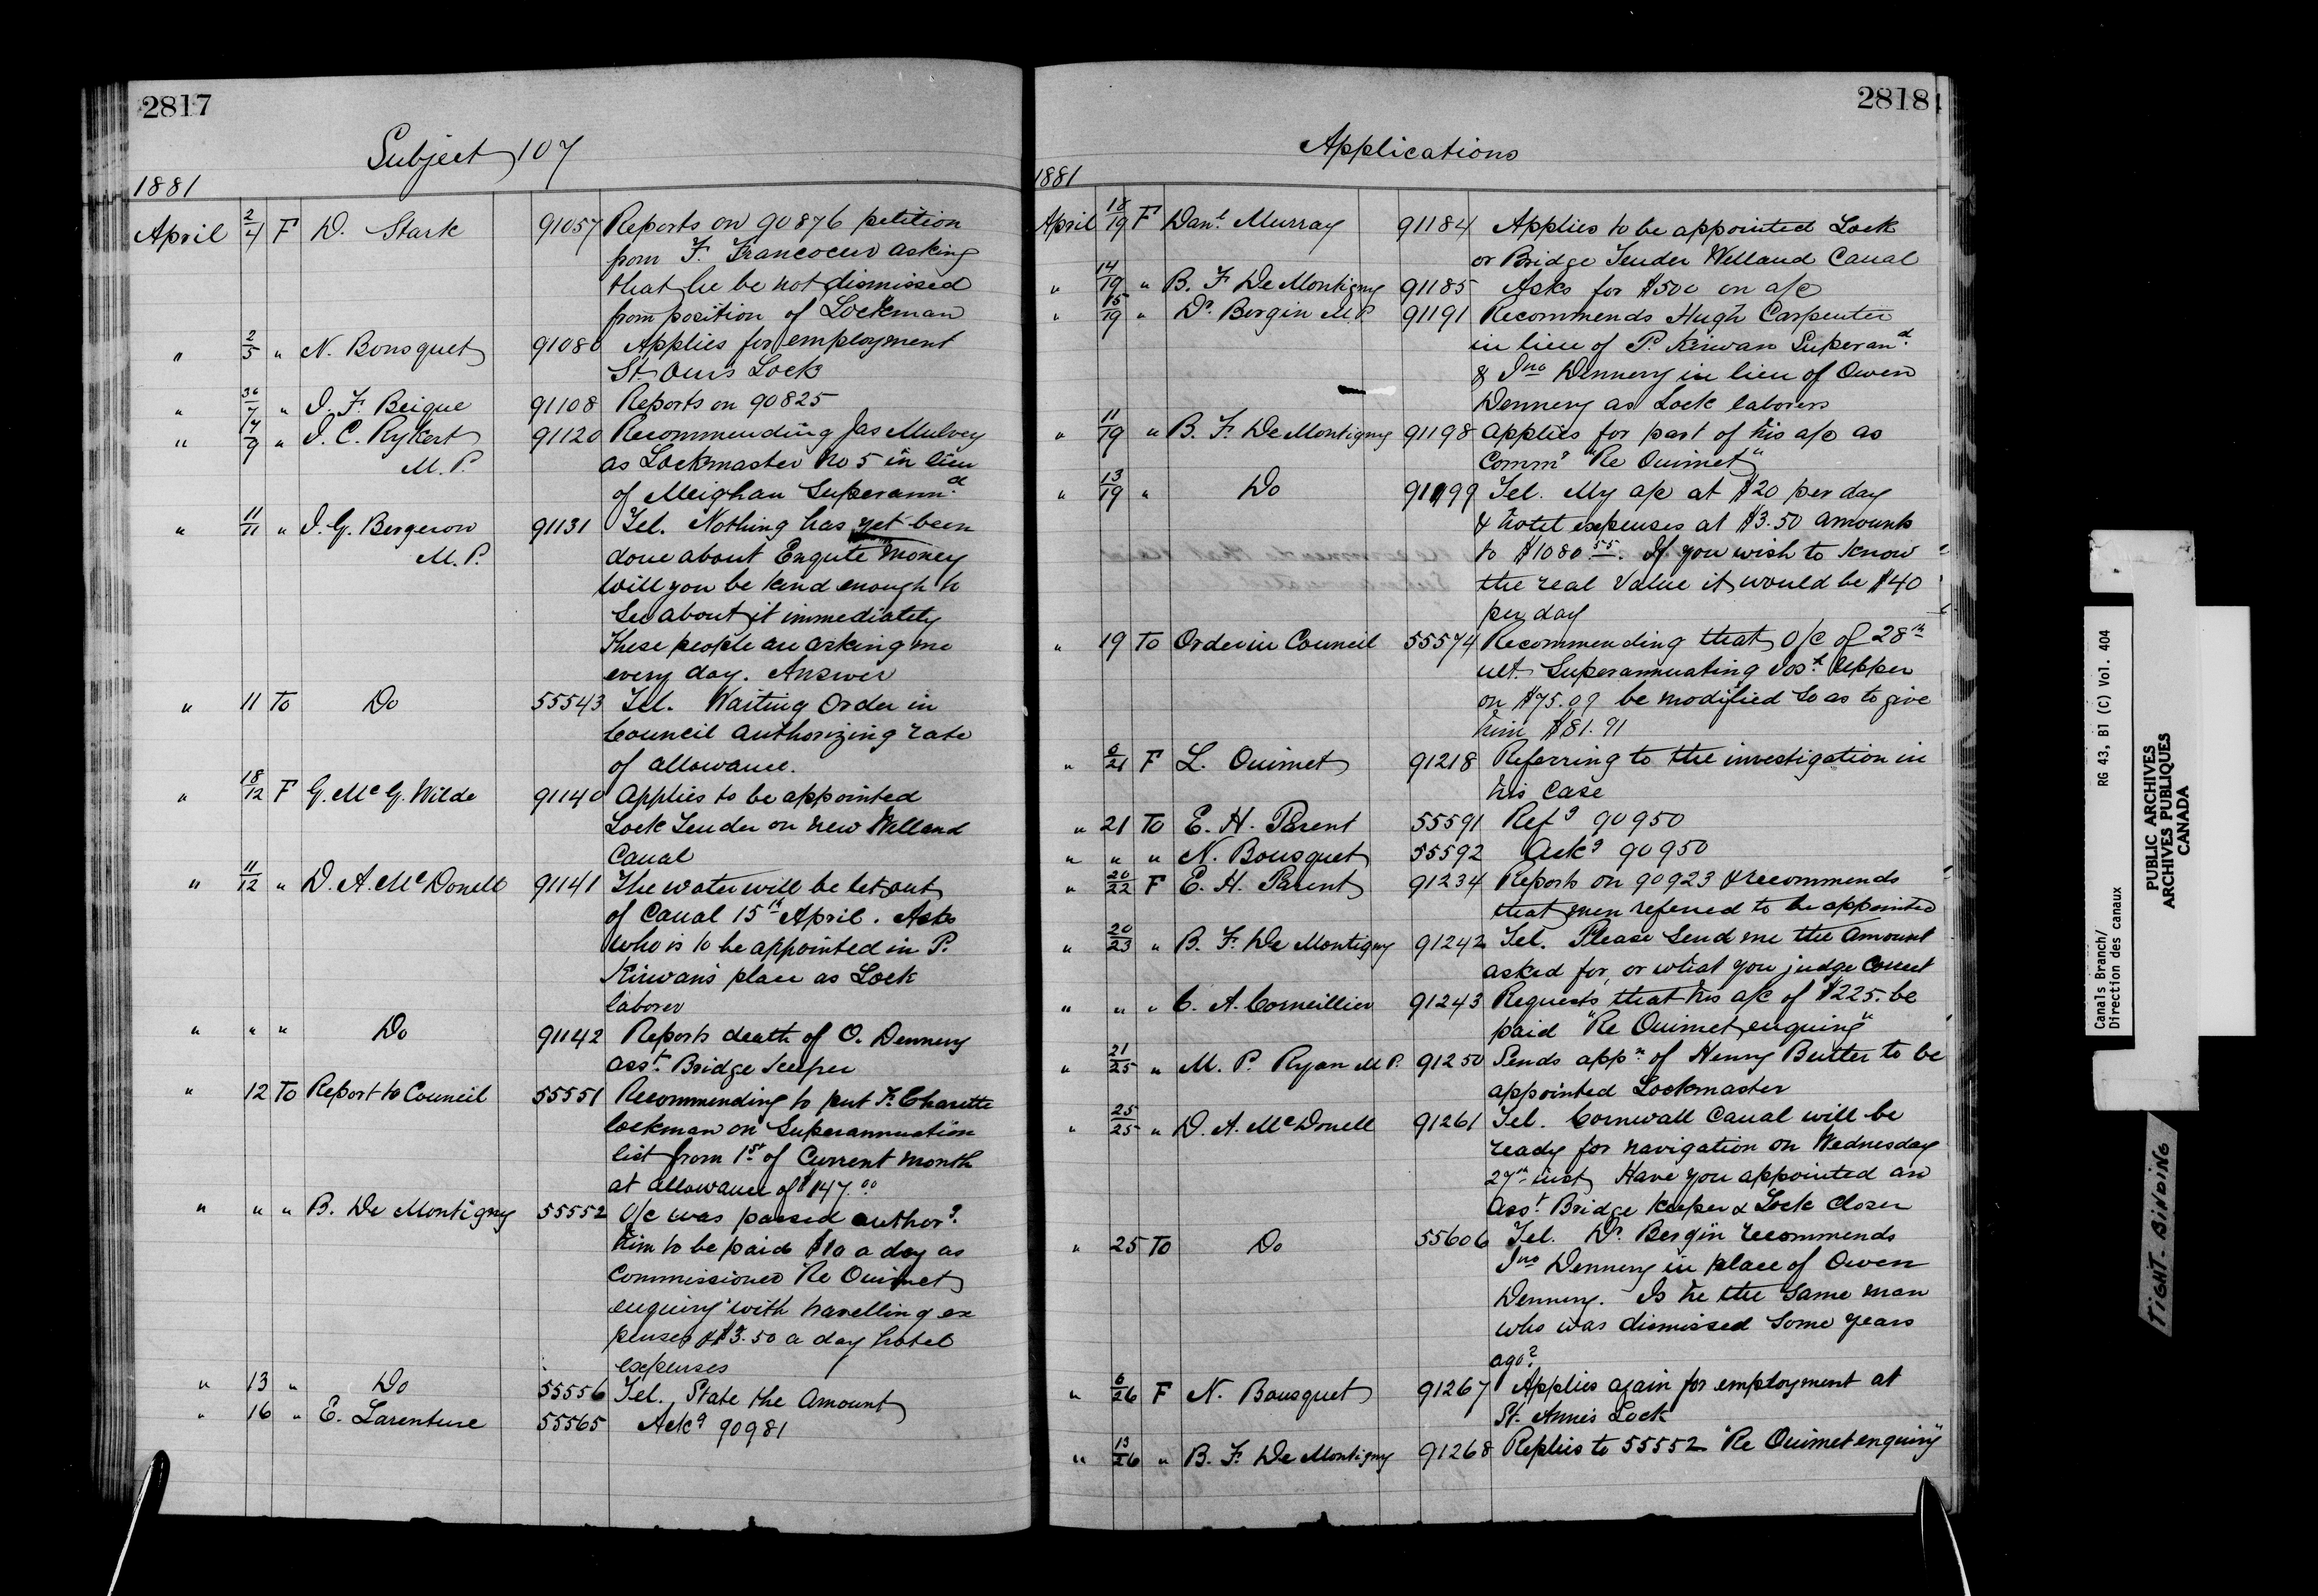 2817
Subject 107
1881
April 2/4 F D. Stark 91057 Reports on 90876 petition
from F. Francoeur asking
that he be not dismissed
from position of Lockman
" 2/5 " N. Bousquet 91080 Applies for employment
St. Ours Lock
" 30/7 " J. F. Beique 91108 Reports on 90825
" 7/9 " J. C. Rykert 91120 Recommending Jas Mulvey
M.P. as Lockmaster No 5 in lieu
of Meighan Superann.d
" 11/11 " J. G. Bergeron 91131 Tel. Nothing has yet been
M.P. done about Enqute money
Will you be kind enough to
See about it immediately
These people are asking me
every day. Answer
" 11 To Do 55543 Tel. Waiting Order in
Council authorizing rate
of allowance.
" 18/12 F G. McG. Wilde 91140 Applies to be appointed
Lock Tender on new Welland
Canal
" 11/12 " D. A. McDonell 91141 The water will be let out
of Canal 15th April. Asks
who is to be appointed in P.
Kirwan's place as Lock
laborer
" " " Do 91142 Reports death of O. Denneny
Asst. Bridge keeper
" 12 To Report to Council 55551 Recommending to put F. Charette
lockman on Superannuation
list from 1st of Current month
at allowance of $147.00
" " " B. De Montigny 55552 O/C was passed author.g
him to be paid $10 a day as
Commissioner "Re Ouimet
enquiry" with travelling ex
penses & $3.50 a day hotel
expenses
" 13 " Do 55556 Tel. State the Amount
" 16 " E. Larenture 55565 Ackg 90981
2818
Applications
1881
April 18/19 F Danl. Murray 91184 Applies to be appointed Lock
or Bridge Tender Welland Canal
" 14/19 " B. F. De Montigny 91185 Asks for $500 on a/c
" 15/19 " Dr. Bergin M.P. 91191 Recommends Hugh Carpenter
in lieu of P. Kirwan Superan.d
& Jno Dennery in lieu of Owen
Dennery as Lock laborers
" 11/19 " B. F. De Montigny 91198 Applies for part of his a/c as
Commr "Re Ouimet"
" 13/19 " Do 91199 Tel. My a/c at $20 per day
& hotel expenses at $3.50 amounts
to $1080 55. If you wish to know
the real value it would be $40
per day
" 19 To Order in Council 55574 Recommending that O/C of 28th
ult. Superannuating Jos.h Upper
on $75.09 be modified so as to give
him $81.91
" 6/21 F L. Ouimet 91218 Referring to the investigation in
his Case
" 21 To E. H. Parent 55591 Refg 90950
" " " N. Bousquet 55592 Ackg 90950
" 20/22 F E. H. Parent 91234 Reports on 90923 & recommends
that men referred to be appointed
" 20/23 " B. F. De Montigny 91242 Tel. Please Send me the Amount
asked for, or what you judge Correct
" " " C. A. Cornellier 91243 Requests that his a/c of $225. be
paid "Re Ouimet enquiry"
" 21/25 " M. P. Ryan M.P. 91250 Sends appn. of Henry Butter to be
appointed Lockmaster
" 25/25 " D. A. McDonell 91261 Tel. Cornwall Canal will be
ready for navigation on Wednesday
27th inst Have you appointed an
Asst. Bridge Keeper & Lock Closer
" 25 To Do 55606 Tel. Dr. Bergin recommends
Jno Dennery in place of Owen
Dennery. Is he the same man
who was dismissed some years
ago?
" 6/26 F N. Bousquet 91267 Applies again for employment at
St. Anne's Lock
" 13/26 " B. F. De Montigny 91268 Replies to 55552 "Re Ouimet enquiry"
Canals Branch/
Direction des canaux
RG 43, B1 (C) Vol. 404
PUBLIC ARCHIVES
ARCHIVES PUBLIQUES
CANADA
TIGHT BINDING